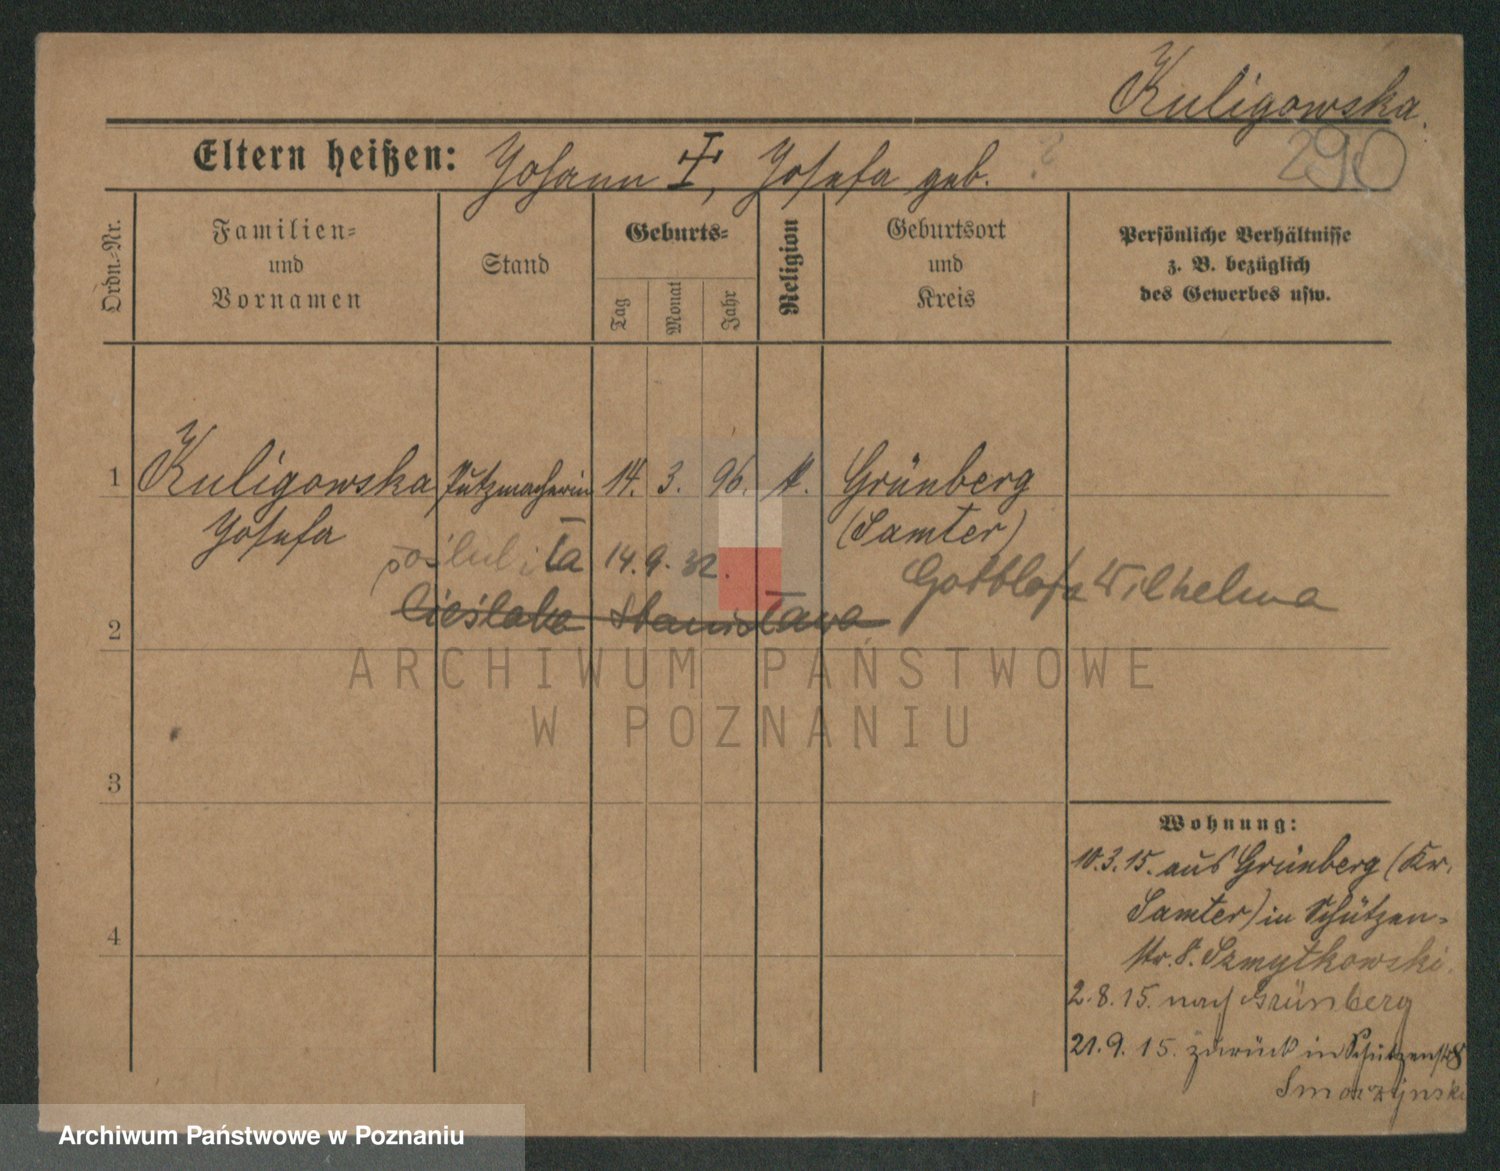 Kuligowska.
290
Eltern heißen: Johann †, Josefa geb. ?
Ordn.-Nr.
Familien- und Vornamen
Stand
Geburts-
Tag
Monat
Jahr
Religion
Geburtsort und Kreis
Persönliche Verhältnisse
z. B. bezüglich
des Gewerbes usw.
1 Kuligowska Putzmacherin 14. 3. 96. k. Grünberg
Josefa (Samter)
poślubiła 14.9.32. Gottlofa Wilhelma
2 Cieślaka Stanisława
ARCHIWUM PAŃSTWOWE
W POZNANIU
3
Wohnung:
10.3.15. aus Grünberg (Kr.
Samter) in Schützen-
4
str. 8. Szmytkowski.
2.8.15. nach Grünberg
21.9.15. zurück in Schützenst 8
Smoczynski
Archiwum Państwowe w Poznaniu